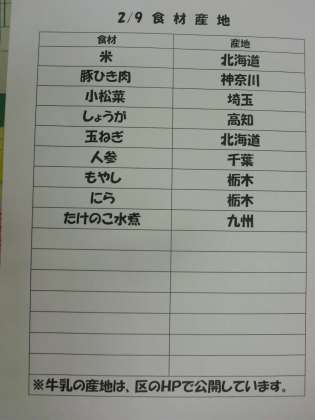 2/9 食材産地
食材 産地
米 北海道
豚ひき肉 神奈川
小松菜 埼玉
しょうが 高知
玉ねぎ 北海道
人参 千葉
もやし 栃木
にら 栃木
たけのこ水煮 九州
※牛乳の産地は、区のHPで公開しています。